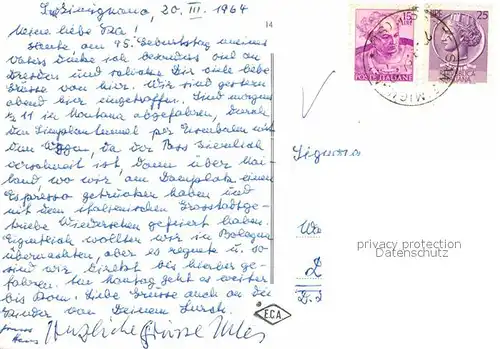 S. Gimignano, 20. III. 1964
Meine liebe Pia!
Heute, am 95. Geburtstag meines
Vaters denke ich besonders viel an
Dresden und schicke Dir viele liebe
Grüsse von hier. Wir sind gestern
abend hier eingetroffen. Sind morgens
½ 11 in Montana abgefahren, durch
den Simplontunnel per Eisenbahn mit
dem Wagen, da der Pass ziemlich
verschneit ist, dann über Mai-
land, wo wir am Domplatz einen
Espresso getrunken haben und
mit dem italienischen Grosstadtge-
triebe Wiedersehen gefeiert haben.
Eigentlich wollten wir in Bologna
übernachten, aber es regnete u. so
sind wir direkt bis hierher ge-
fahren. Am Montag geht es weiter
bis Rom. Liebe Grüsse auch an die
Kinder von Deinem
Hans
Herzliche Grüsse
14
155
LIRE
POSTE ITALIANE
25
Signora
privacy protection
Datenschutz
E.C.A.